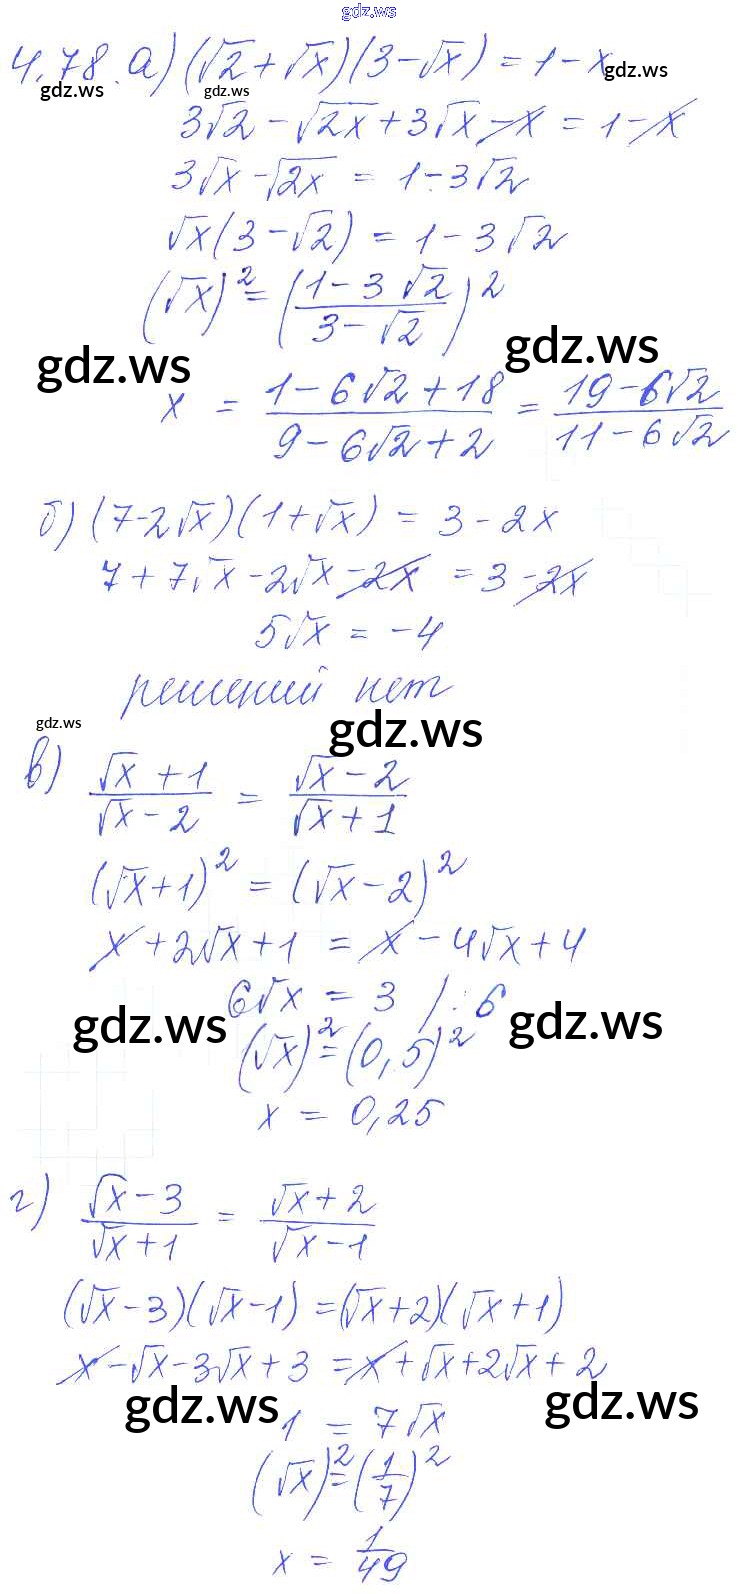 gdz.ws
4.78. а) (√2 + √x)(3 − √x) = 1 − x
gdz.ws gdz.ws
3√2 − √2x + 3√x − x = 1 − x
3√x − √2x = 1 − 3√2
√x(3 − √2) = 1 − 3√2
(√x)² = ((1 − 3√2)/(3 − √2))²
gdz.ws gdz.ws
x = (1 − 6√2 + 18)/(9 − 6√2 + 2) = (19 − 6√2)/(11 − 6√2)
б) (7 − 2√x)(1 + √x) = 3 − 2x
7 + 7√x − 2√x − 2x = 3 − 2x
5√x = −4
решений нет
gdz.ws gdz.ws
в) (√x + 1)/(√x − 2) = (√x − 2)/(√x + 1)
(√x + 1)² = (√x − 2)²
x + 2√x + 1 = x − 4√x + 4
6√x = 3 / : 6
gdz.ws gdz.ws
(√x)² = (0,5)²
x = 0,25
г) (√x − 3)/(√x + 1) = (√x + 2)/(√x − 1)
(√x − 3)(√x − 1) = (√x + 2)(√x + 1)
x − √x − 3√x + 3 = x + √x + 2√x + 2
gdz.ws gdz.ws
1 = 7√x
(√x)² = (1/7)²
x = 1/49